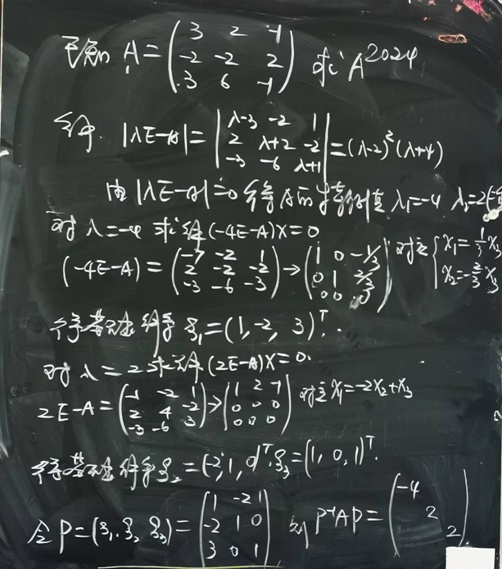 已知 A = (3 2 -1; -2 -2 2; 3 6 -1) 求 A^2024
解. |λE-A| = |λ-3 -2 1; 2 λ+2 -2; -3 -6 λ+1| = (λ-2)²(λ+4)
由 |λE-A|=0 得 A的特征值 λ₁=-4 λ₂=2
对 λ=-4 求解 (-4E-A)X=0
(-4E-A) = (-7 -2 1; 2 -2 -2; -3 -6 -3) → (1 0 -1/3; 0 1 2/3; 0 0 0) 对应 {x₁=1/3 x₃ x₂=-2/3 x₃
得基础解系 ξ₁=(1,-2, 3)ᵀ.
对 λ=2 求解 (2E-A)X=0.
2E-A = (-1 -2 1; 2 4 -2; -3 -6 3) → (1 2 -1; 0 0 0; 0 0 0) 对应 x₁=-2x₂+x₃
得基础解系 ξ₂=(-2,1,0)ᵀ, ξ₃=(1, 0, 1)ᵀ.
令 P=(ξ₁, ξ₂ ξ₃) = (1 -2 1; -2 1 0; 3 0 1) 则 P⁻¹AP = (-4 2 2).